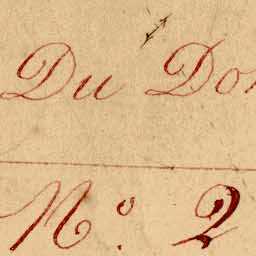 Du Do
Nº. 2